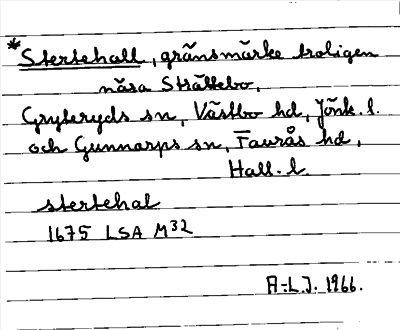 *Stertehall, gränsmärke troligen
nära Stråttebo,
Gryteryds sn, Västbo hd, Jönk. l.
och Gunnarps sn, Faurås hd,
Hall. l.
stertehal
1675 LSA M32
A-L.J. 1966.